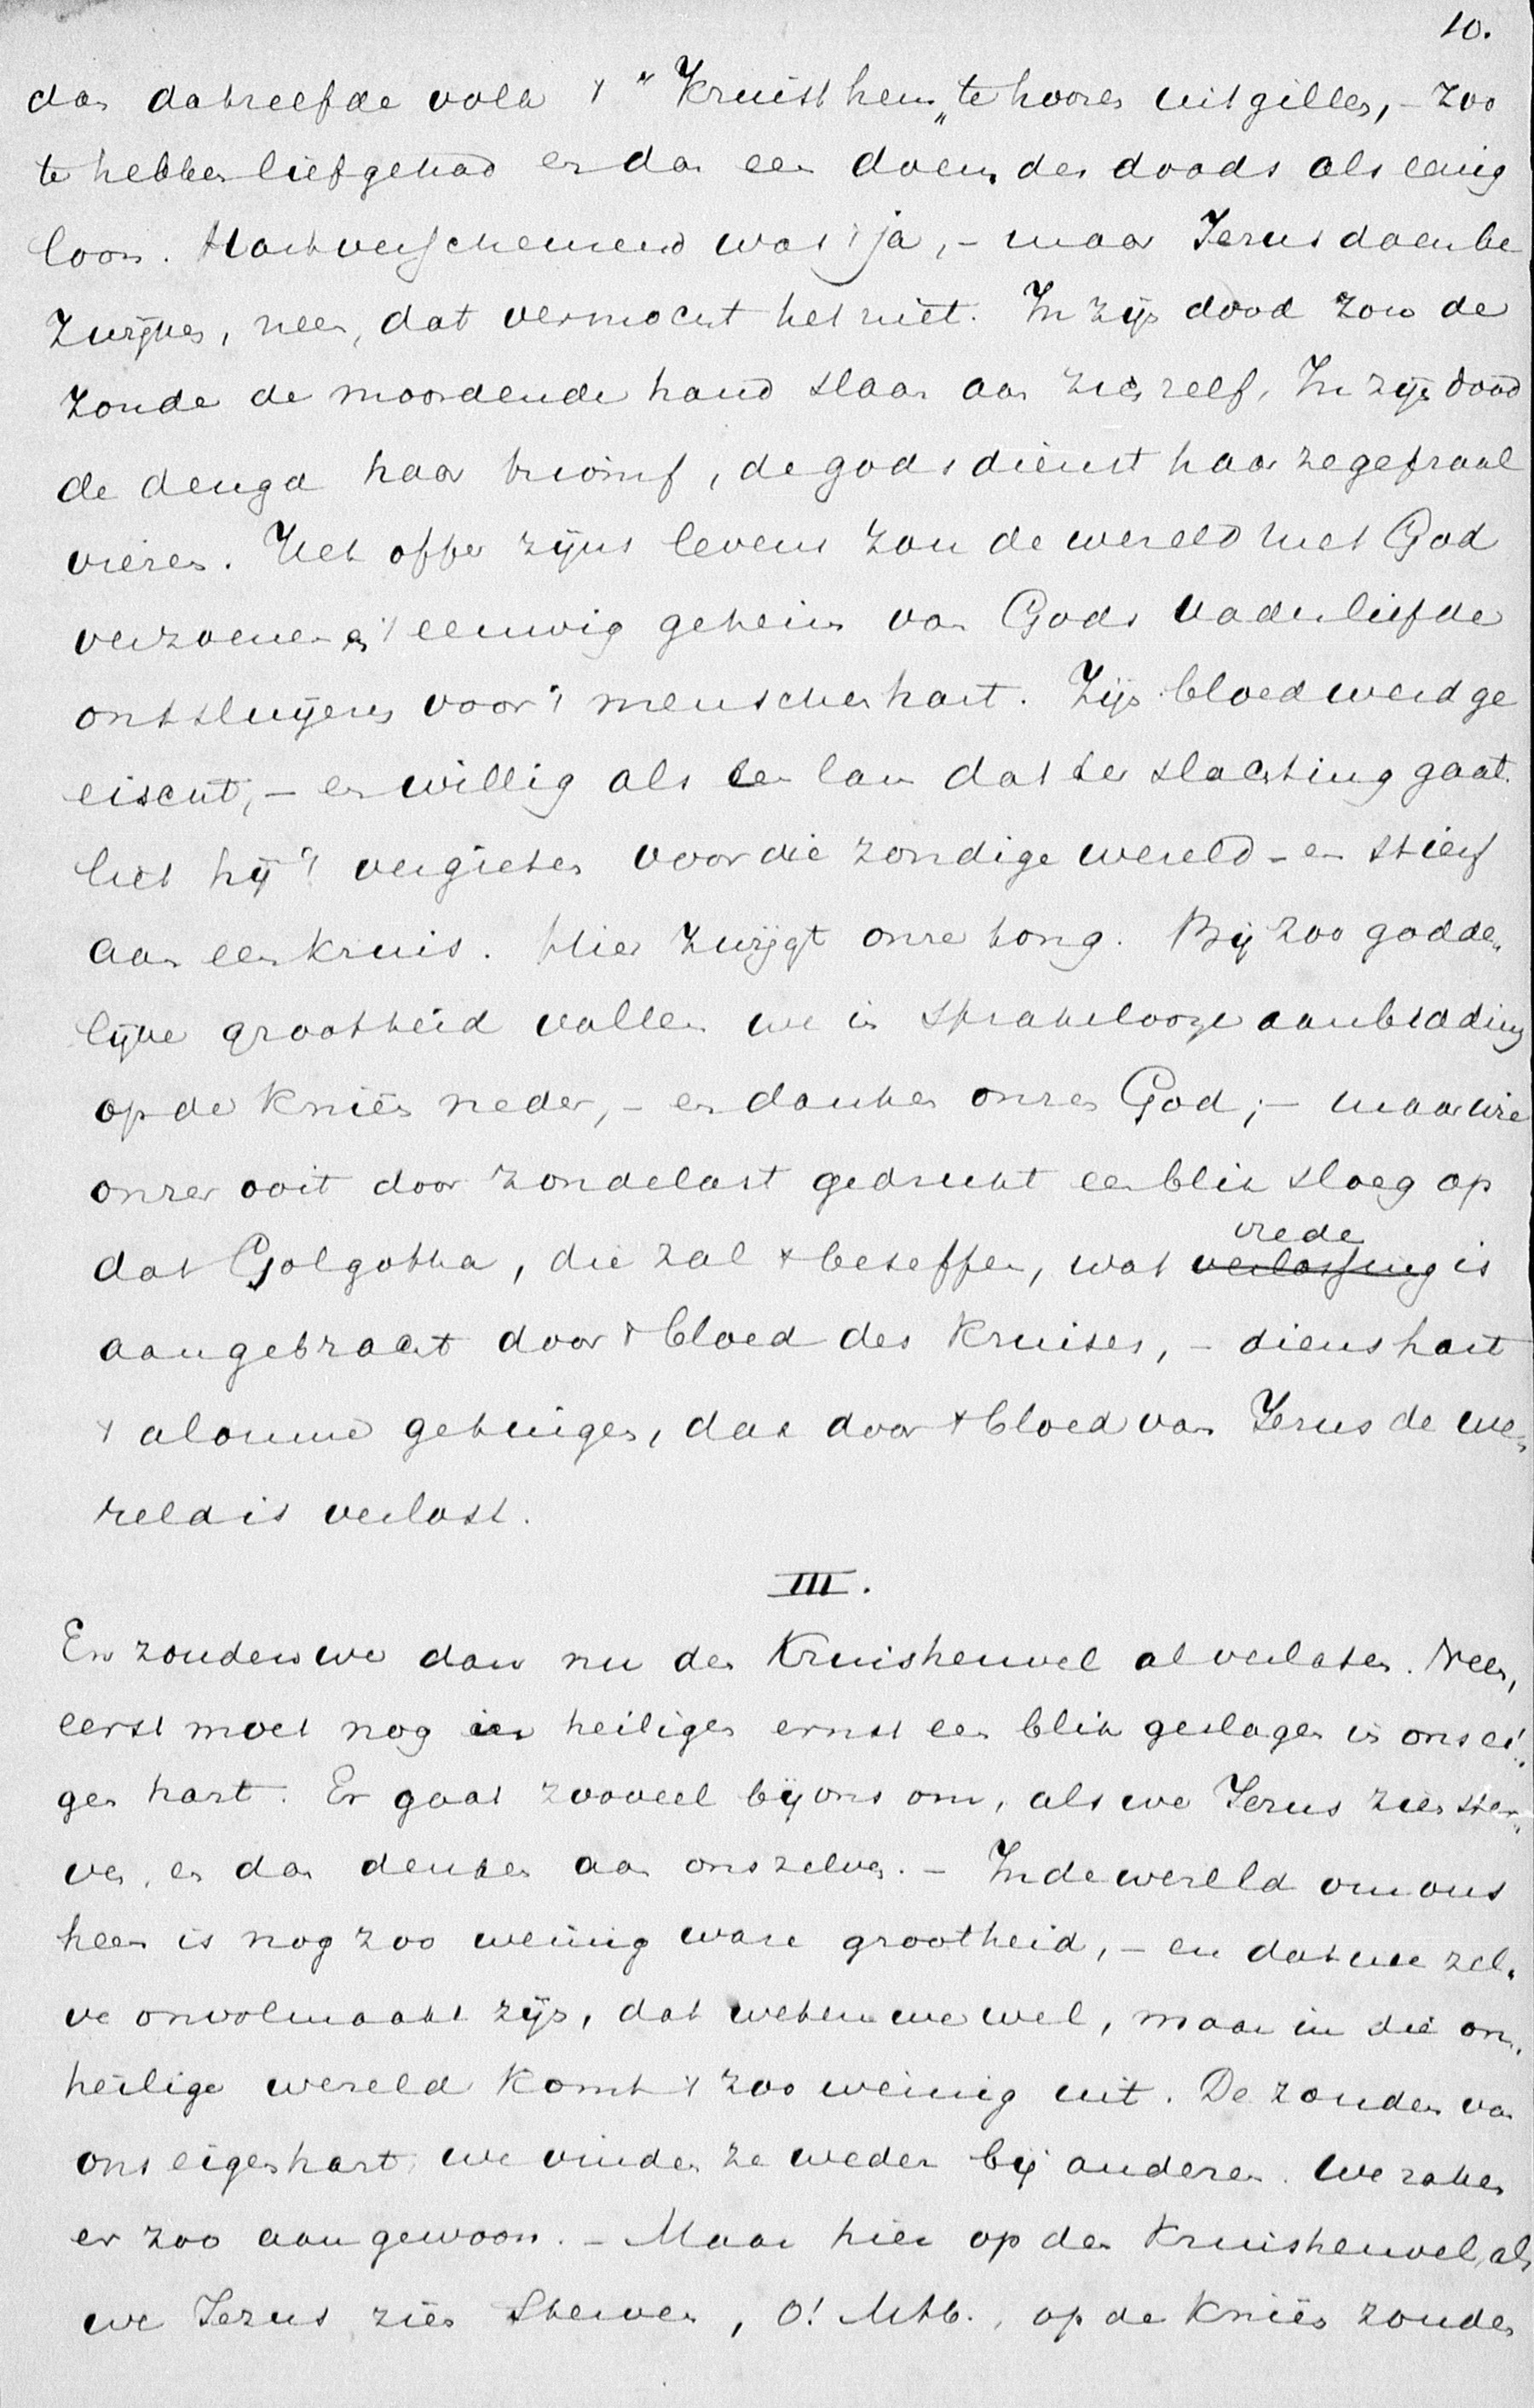 10.
dan datzelfde volk 't "Kruist hem„ te hooren uitgillen, – zoo
te hebben liefgehad en dan een doem des doods als eenig
loon. Hartverscheurend was 't ja, – maar Jezus doen be
zwijken, neen, dat vermocht het niet. In zijn dood zou de
zonde de moordende hand slaan aan zich zelf, In zijn dood
de deugd haar triomf, de godsdienst haar zegepraal
vieren. Het offer zijns levens zou de wereld met God
verzoenen en 't eeuwig geheim van Gods Vaderliefde
ontsluijeren voor 't menschenhart. Zijn bloed werd ge
eischt, – en willig als een lam dat ter slachting gaat
liet hij 't vergieten voor die zondige wereld – en stierf
aan een kruis. Hier zwijgt onze tong. Bij zoo godde„
lijke grootheid vallen we in sprakelooze aanbidding
op de knieën neder, – en danken onzen God; – maar wie
onzer ooit door zondelast gedrukt een blik sloeg op
dat Golgotha, die zal 't beseffen, wat vrede verlossing is
aangebracht door 't bloed des Kruises, – diens hart
't alomme getuigen, dat door 't bloed van Jezus de we„
reld is verlost.
III.
En zouden we dan nu den Kruisheuvel al verlaten. Neen,
eerst moet nog in heiligen ernst een blik geslagen in ons ei„
gen hart. Er gaat zooveel bij ons om, als we Jezus zien ster„
ven, en dan denken aan ons zelven. – In de wereld om ons
heen is nog zoo weinig ware grootheid, – en dat we zel„
ve onvolmaakt zijn, dat weten we wel, maar in die on„
heilige wereld komt 't zoo weinig uit. De zonden van
ons eigen hart, we vinden ze weder bij anderen. We raken
er zoo aan gewoon. – Maar hier op den Kruisheuvel, als
we Jezus zien sterven, O! M.tb., op de knieën zouden